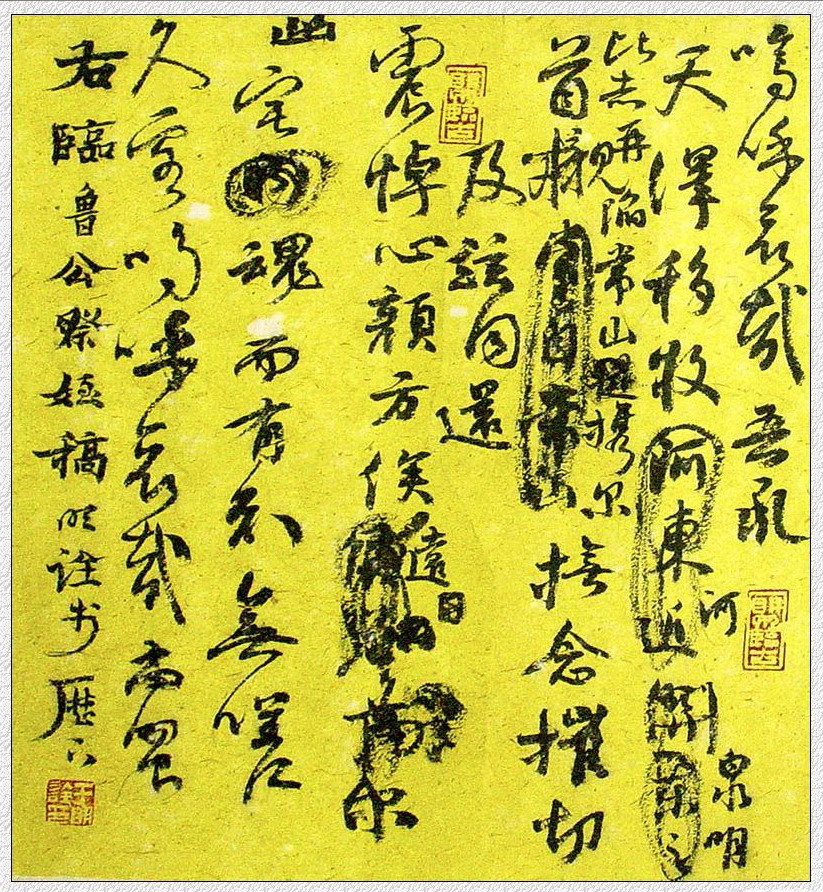 嗚呼哀哉吾承
天澤移牧河東近河關
泉明
比者再陷常山攜尔
首櫬
及茲同還
撫念摧切
震悼心顏方俟遠日
尔
幽宅魂而有知無嗟
久客嗚呼哀哉尚饗
右臨魯公祭姪稿明詮书歷下